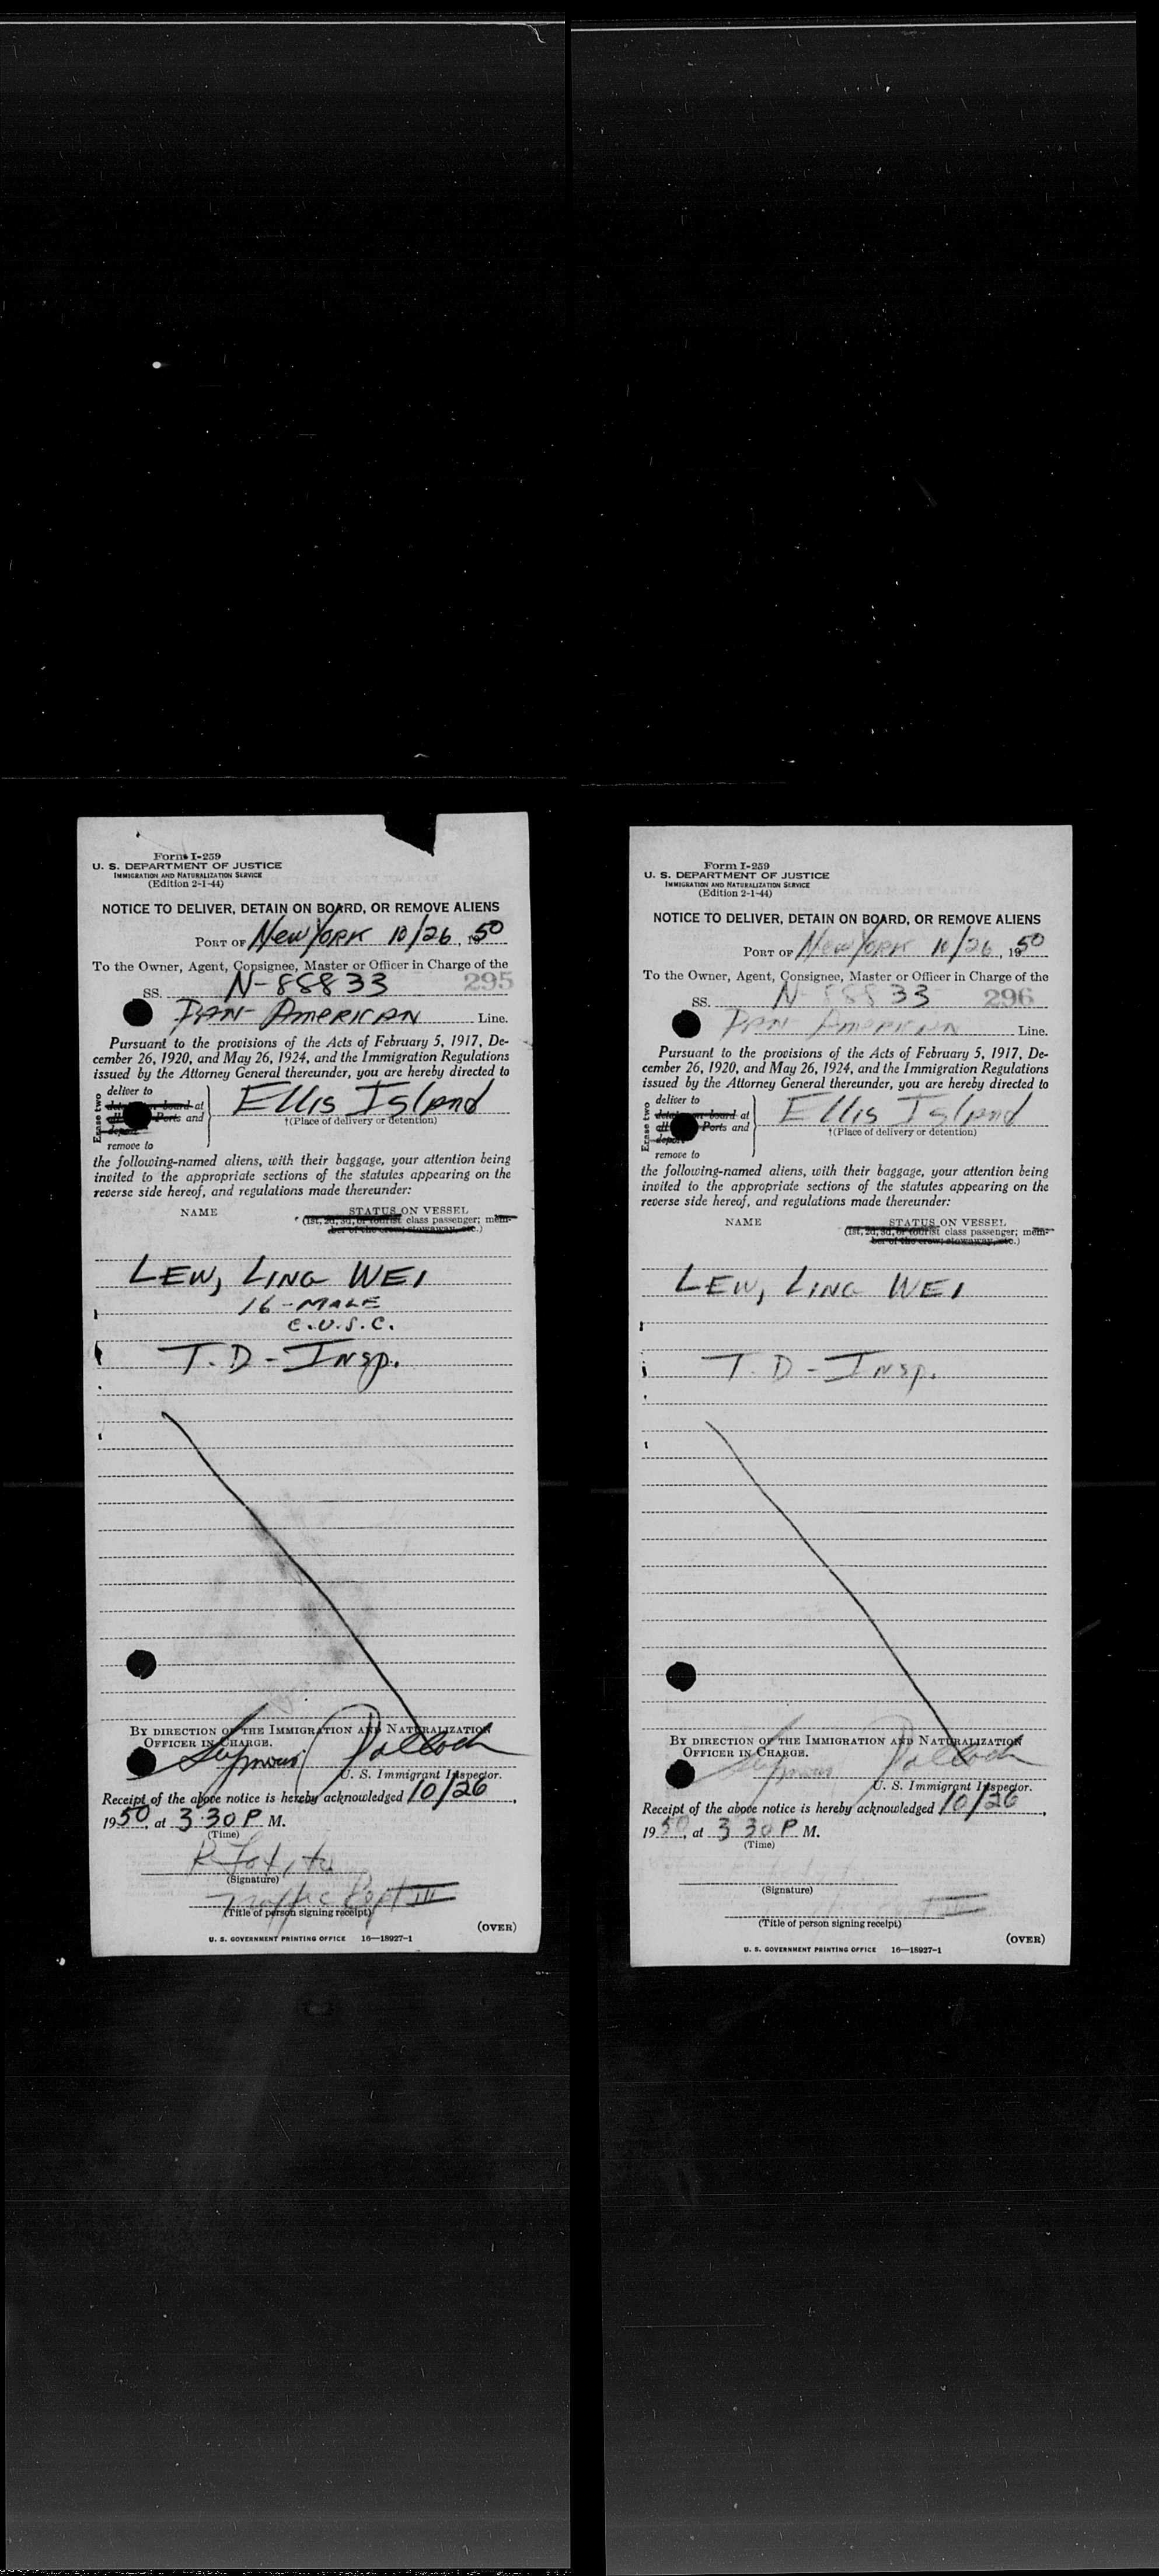 Form I-259
U. S. DEPARTMENT OF JUSTICE
IMMIGRATION AND NATURALIZATION SERVICE
(Edition 2-1-44)
NOTICE TO DELIVER, DETAIN ON BOARD, OR REMOVE ALIENS
PORT OF New York 10/26, 1950
To the Owner, Agent, Consignee, Master or Officer in Charge of the
SS. N-88833 295
PAN-AMERICAN Line.
Pursuant to the provisions of the Acts of February 5, 1917, De-
cember 26, 1920, and May 26, 1924, and the Immigration Regulations
issued by the Attorney General thereunder, you are hereby directed to
Erase two
deliver to
detain on board at
all Ports and
deport
remove to
Ellis Island
†(Place of delivery or detention)
the following-named aliens, with their baggage, your attention being
invited to the appropriate sections of the statutes appearing on the
reverse side hereof, and regulations made thereunder:
NAME STATUS ON VESSEL
(1st, 2d, 3d, or tourist class passenger; mem-
ber of the crew; stowaway, etc.)
LEW, LING WEI
16-MALE
C.U.S.C.
T.D-Insp.
BY DIRECTION OF THE IMMIGRATION AND NATURALIZATION
OFFICER IN CHARGE.
Seymour Pollock
U. S. Immigrant Inspector.
Receipt of the above notice is hereby acknowledged 10/26,
1950, at 3:30 P M.
(Time)
(Signature)
Traffic Rept III
(Title of person signing receipt)
(OVER)
U. S. GOVERNMENT PRINTING OFFICE 16—18927-1
Form I-259
U. S. DEPARTMENT OF JUSTICE
IMMIGRATION AND NATURALIZATION SERVICE
(Edition 2-1-44)
NOTICE TO DELIVER, DETAIN ON BOARD, OR REMOVE ALIENS
PORT OF New York 10/26, 1950
To the Owner, Agent, Consignee, Master or Officer in Charge of the
SS. N-88833 296
PAN American Line.
Pursuant to the provisions of the Acts of February 5, 1917, De-
cember 26, 1920, and May 26, 1924, and the Immigration Regulations
issued by the Attorney General thereunder, you are hereby directed to
Erase two
deliver to
detain on board at
all Ports and
deport
remove to
Ellis Island
†(Place of delivery or detention)
the following-named aliens, with their baggage, your attention being
invited to the appropriate sections of the statutes appearing on the
reverse side hereof, and regulations made thereunder:
NAME STATUS ON VESSEL
(1st, 2d, 3d, or tourist class passenger; mem-
ber of the crew; stowaway, etc.)
LEW, LING WEI
T.D-Insp.
BY DIRECTION OF THE IMMIGRATION AND NATURALIZATION
OFFICER IN CHARGE.
Seymour Pollock
U. S. Immigrant Inspector.
Receipt of the above notice is hereby acknowledged 10/26,
1950, at 3 30 P M.
(Time)
(Signature)
(Title of person signing receipt)
(OVER)
U. S. GOVERNMENT PRINTING OFFICE 16—18927-1